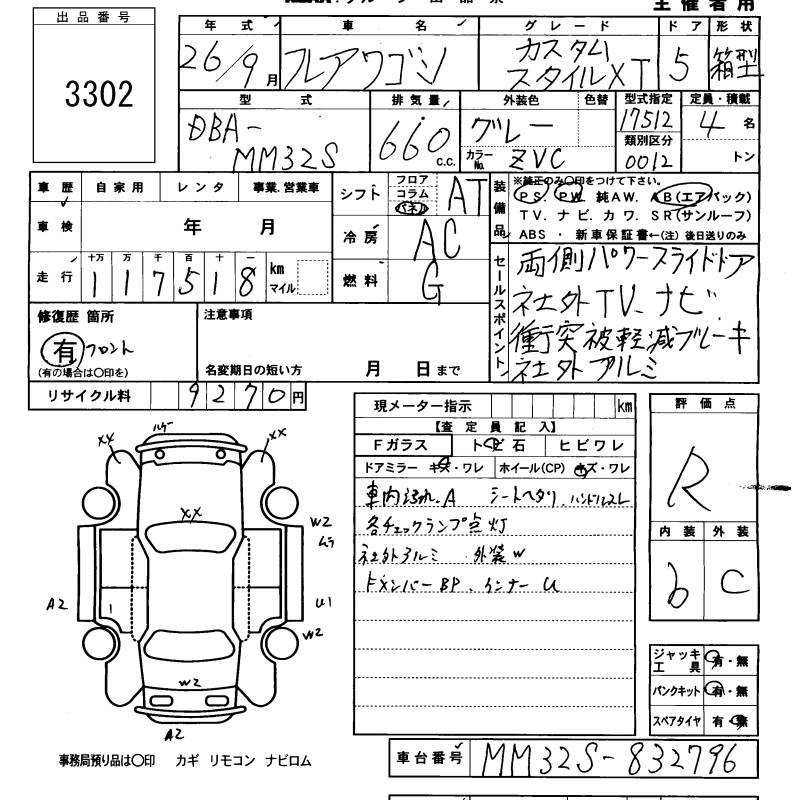 主催者用
出品番号
3302
年式 車名 グレード ドア 形状
26/9月 フレアワゴン カスタム スタイルXT 5 箱型
型式 排気量 外装色 色替 型式指定 定員・積載
DBA-MM32S 660 c.c. グレー 17512 4名
カラーNo. ZVC 類別区分 0012 トン
車歴 自家用 レンタ 事業.営業車
車検 年 月
走行 十万 万 千 百 十 一
117518 km マイル
シフト フロア コラム パネル AT
冷房 AC
燃料 G
装備品
※純正のみ○印をつけて下さい。
PS. PW. 純AW. AB(エアバック)
TV. ナビ. カワ. SR(サンルーフ)
ABS ・ 新車保証書←(注) 後日送りのみ
セールスポイント
両側パワースライドドア
社外TV、ナビ
衝突被軽減ブレーキ
社外アルミ
修復歴 箇所
有 フロント
(有の場合は○印を)
注意事項
名変期日の短い方 月 日まで
リサイクル料 9270円
現メーター指示 km
【査定員記入】
Fガラス トビ石 ヒビワレ
ドアミラー キズ・ワレ ホイール(CP) キズ・ワレ
車内汚れ.A シートヘタリ. ハンドルスレ
各チェックランプ点灯
社外アルミ 外装W
FメンバーBP、インナーU
評価点
R
内装 外装
b C
ジャッキ 工具 有・無
パンクキット 有・無
スペアタイヤ 有・無
XX XX
XX
W2
ムラ
A2 1 U1
W2
W2
A2
事務局預り品は○印 カギ リモコン ナビロム
車台番号 MM32S-832796